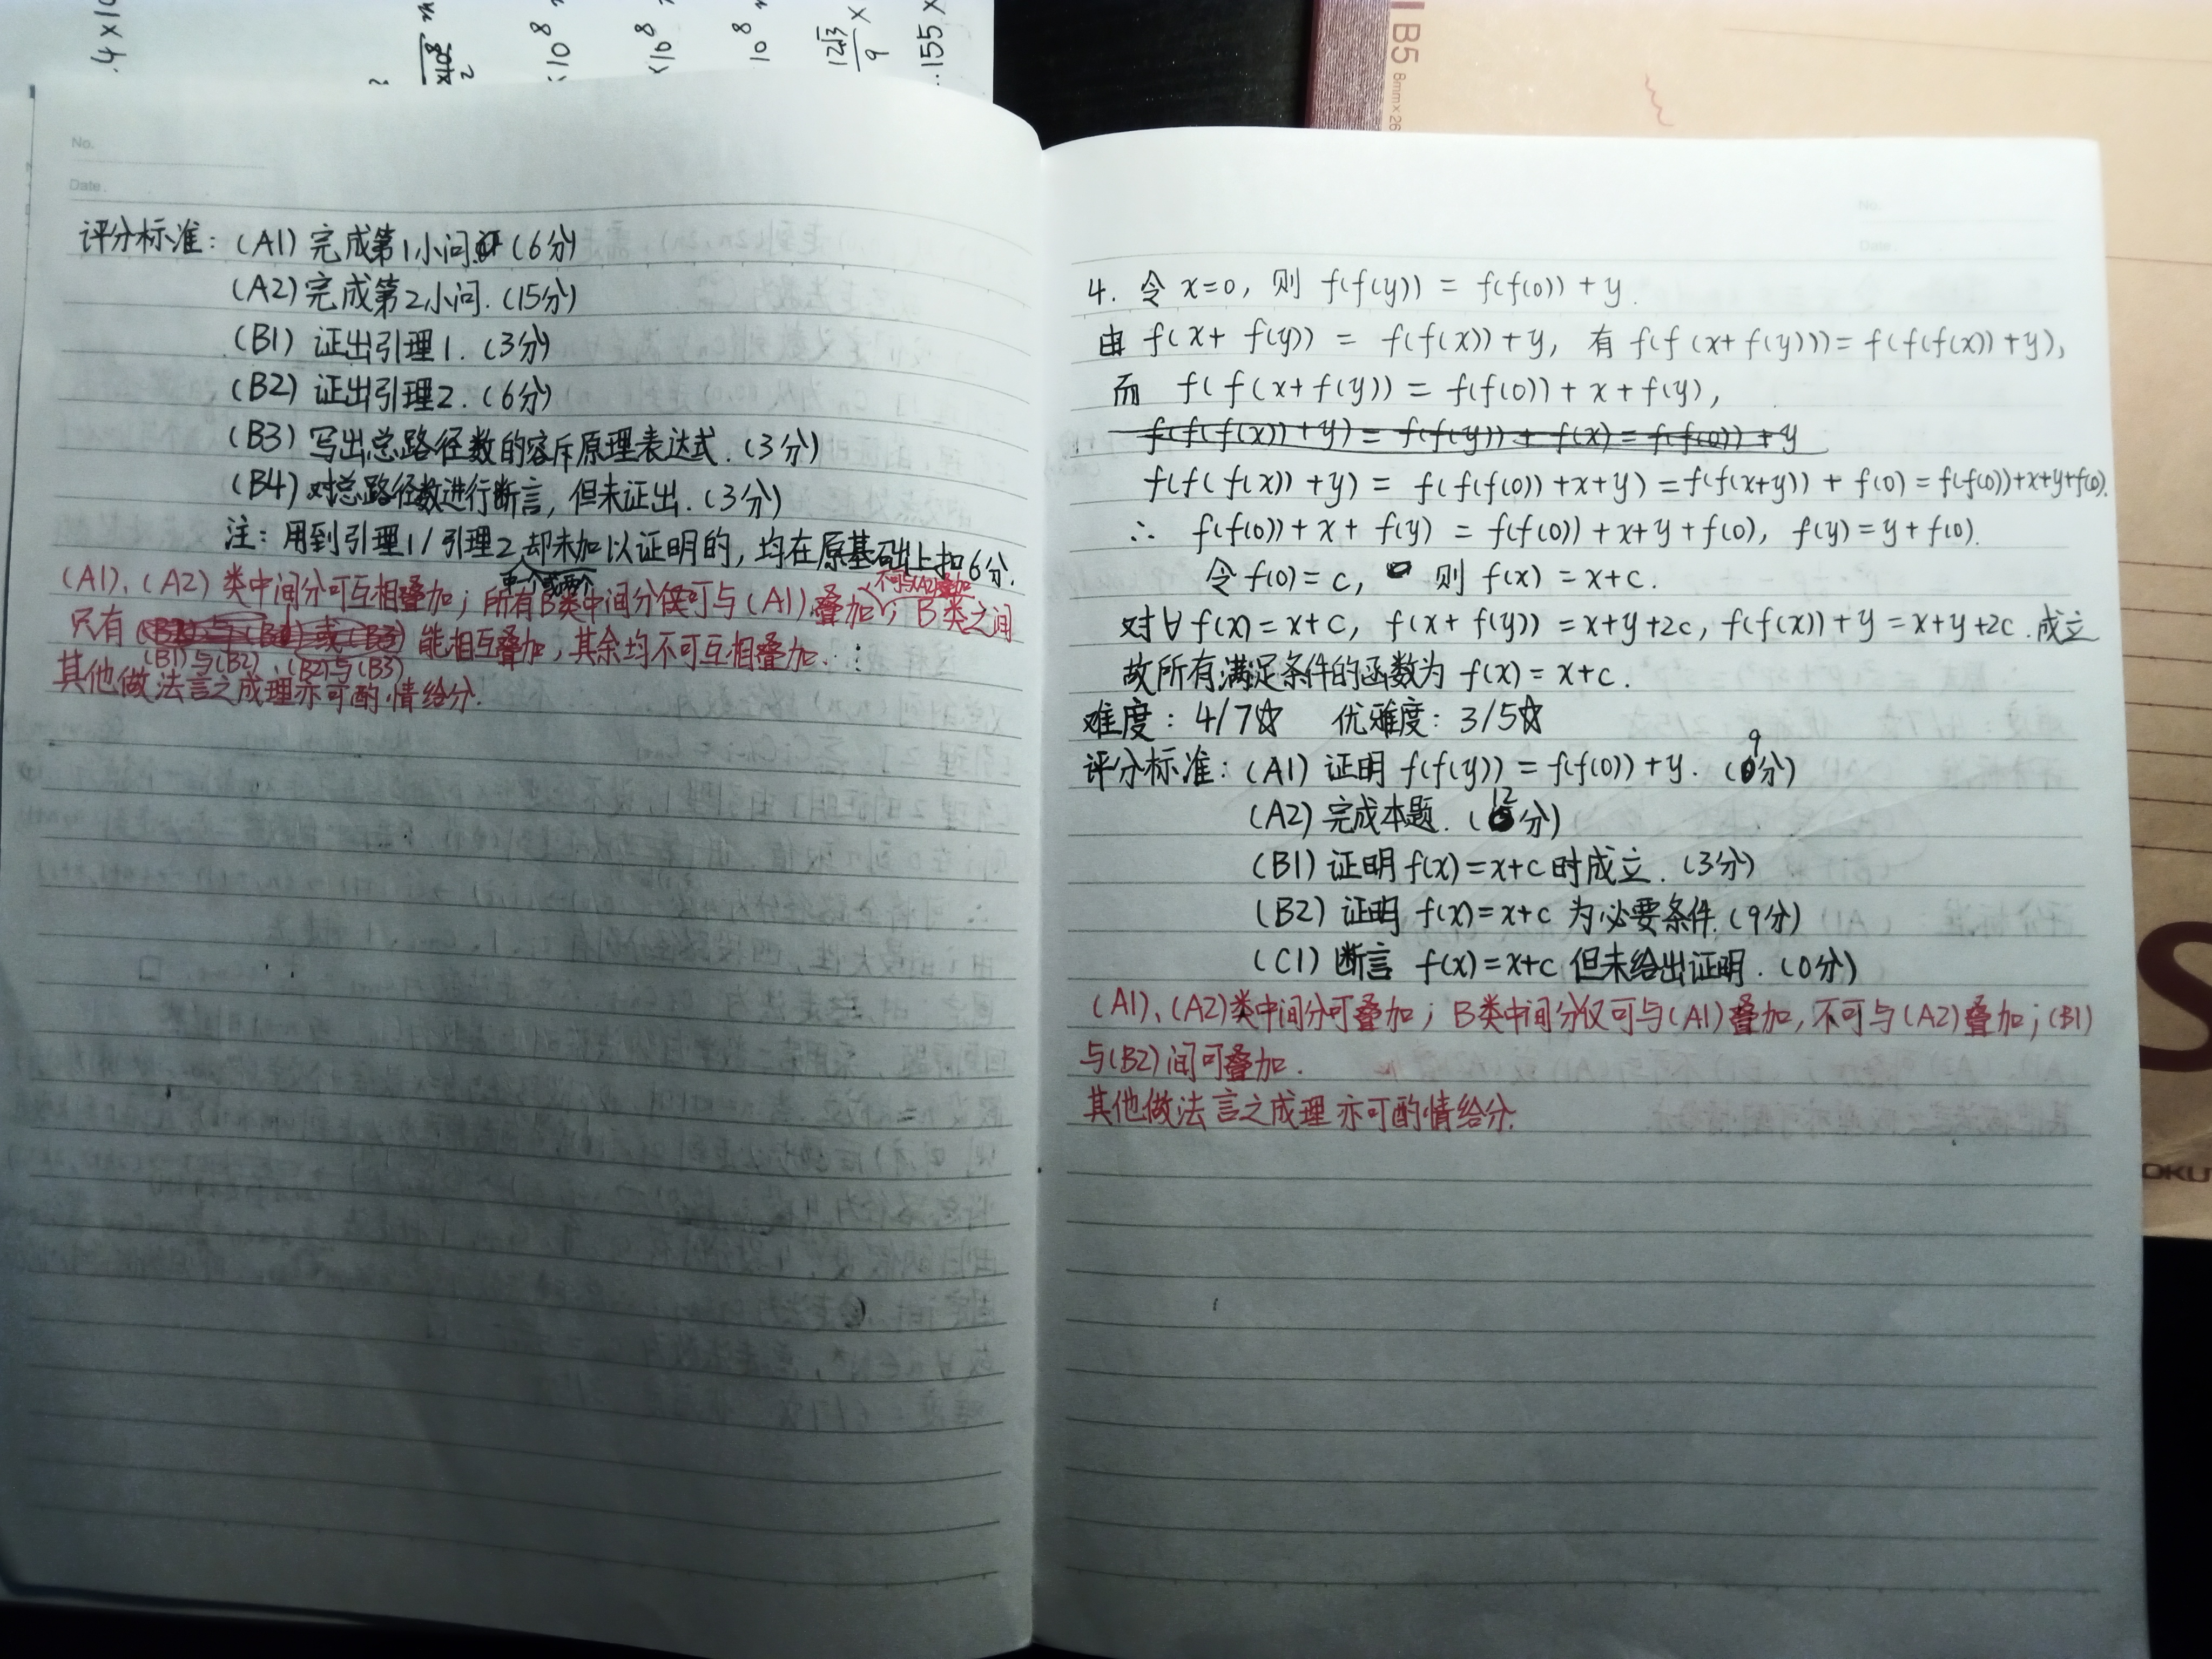 .4×10
×10⁸
2
×10⁸
×10⁸
10⁸
12√3
9
×
.155×
B5 8mm×26
No.
Date.
评分标准：(A1) 完成第1小问 (6分)
(A2) 完成第2小问. (15分)
(B1) 证出引理1. (3分)
(B2) 证出引理2. (6分)
(B3) 写出总路径数的容斥原理表达式. (3分)
(B4) 对总路径数进行断言, 但未证出. (3分)
注：用到引理1/引理2却未加以证明的, 均在原基础上扣6分.
单个或两个
不可与(A2)叠加
(A1)、(A2) 类中间分可互相叠加；所有B类中间分仅可与(A1)叠加；B类之间
只有 能相互叠加, 其余均不可互相叠加.
(B1)与(B2)、(B2)与(B3)
其他做法言之成理亦可酌情给分.
No.
Date
4. 令 x=0, 则 f(f(y)) = f(f(0)) + y.
由 f(x+ f(y)) = f(f(x)) + y, 有 f(f(x+f(y))) = f(f(f(x)) + y),
而 f(f(x+f(y))) = f(f(0)) + x + f(y),
f(f(f(x)) + y) = f(f(y)) + f(x) = f(f(0)) + y
f(f(f(x)) + y) = f(f(f(0)) + x+y) = f(f(x+y)) + f(0) = f(f(0))+x+y+f(0).
∴ f(f(0)) + x + f(y) = f(f(0)) + x+y + f(0), f(y) = y + f(0).
令 f(0) = c, 则 f(x) = x+c.
对∀ f(x) = x+c, f(x+ f(y)) = x+y+2c, f(f(x)) + y = x+y+2c. 成立
故所有满足条件的函数为 f(x) = x+c.
难度：4/7☆ 优难度：3/5☆
评分标准：(A1) 证明 f(f(y)) = f(f(0)) + y. (9分)
(A2) 完成本题. (12分)
(B1) 证明 f(x) = x+c 时成立. (3分)
(B2) 证明 f(x) = x+c 为必要条件. (9分)
(C1) 断言 f(x) = x+c 但未给出证明. (0分)
(A1)、(A2)类中间分可叠加；B类中间分仅可与(A1)叠加, 不可与(A2)叠加；(B1)
与(B2)间可叠加.
其他做法言之成理亦可酌情给分.
S
OKU